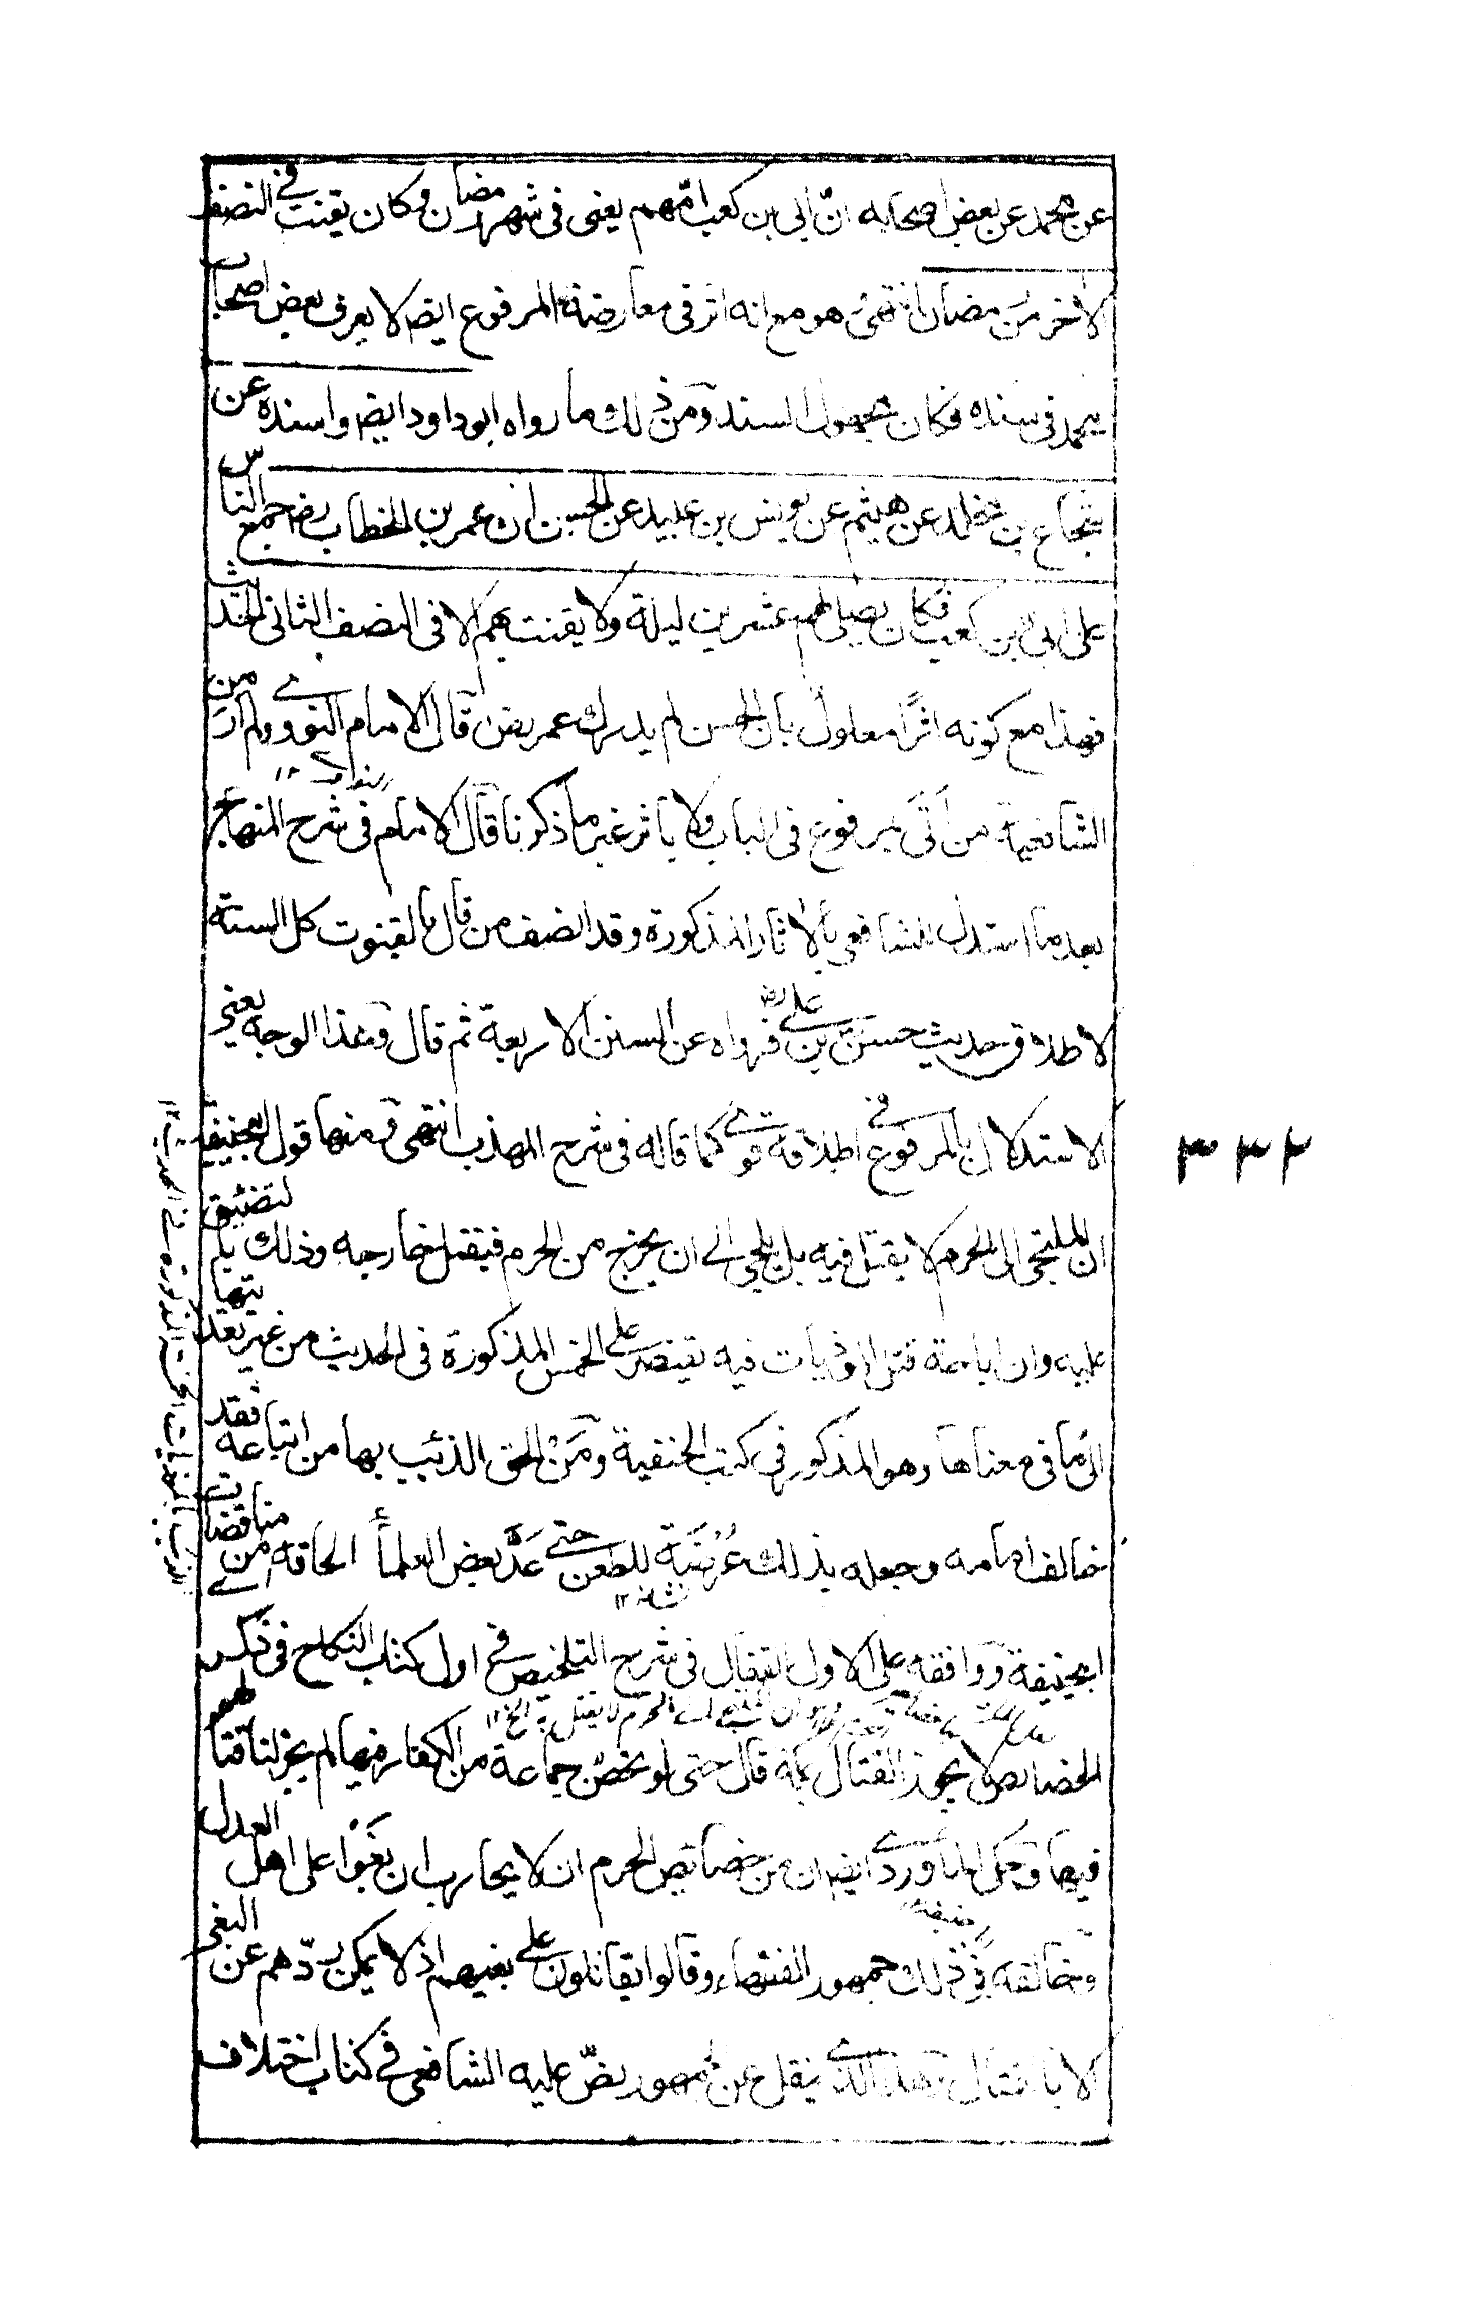 عن محمد عن بعض اصحابه انّ ابي بن كعب امّهم يعنى فى شهر رمضان وكان يقنت فى النصف
الاخر من رمضان انتهىٰ هو مع انه اثر فى معارضة المرفوع ايضا لا يعرف بعض اصحاب
محمد فى سنده فكان مجهول السند ومن ذلك ما رواه ابو داود ايضا واسنده عن
شجاع بن مخلد عن هيثم عن يونس بن عبيد عن الحسن ان عمر بن الخطاب رضـ جمع الناس
على ابى بن كعب فكان يصلى لهم عشرين ليلة ولا يقنت بهم الا فى النصف الثانى الحديث
فهذا مع كونه اثرًا معلولٌ بان الحسن لم يدرك عمر رضـ قال الامام النووى ولم ار من
الشافعية من اتى بمرفوع فى الباب ولا باثر غير ما ذكرنا قال الامام فى شرح المنهاج
بعد ما استدل للشافعى بالاثار المذكورة وقد انصف من قال بالقنوت كل السنة
لاطلاق حديث حسن بن على رضـ فرواه عن السنن الاربعة ثم قال وهذا الوجه يعنى
الاستدلال بالمرفوع فى اطلاقه قوى كما قاله فى شرح المهذب انتهى ومنها قول ابيحنيفة
ان الملتجى الى الحرم لا يقتل فيه بل يلجى الى ان يخرج من الحرم فيقتل خارجه وذلك بالتضييق
عليه وان اباحة قتل الموذيات فيه يقتصر على الخمس المذكورة فى الحديث من غير تعديتها
الى ما فى معناها وهو المذكور فى كتب الحنفية ومن الحق الذئب بها من اتباعه فقد
خالف امامه وجعله بذلك عُرْضَة للطعن حتى عَدَّ بعض العلمأ الحاقه من مناقضات
ابيحنيفة ووافقه على الاول القفال فى شرح التلخيص فى اول كتاب النكاح فى ذكر
الخصائص لا يجوز القتال بمكة قال حتى لو تحصن جماعة من الكفار فيها لم يجز لنا قتالهم
فيها وحكى الماوردى ايضا ان من خصائص الحرم ان لا يحارب ان بَغَوْا على اهل العدل
وخالفه فى ذلك جمهور الفقهاء وقالوا يقاتلون على بغيهم اذ لا يمكن ردّهم عن البغى
الا بالقتال وهذا الذى ينقل عن الجمهور نصّ عليه الشافعى فى كتاب اختلاف
٣٣٢